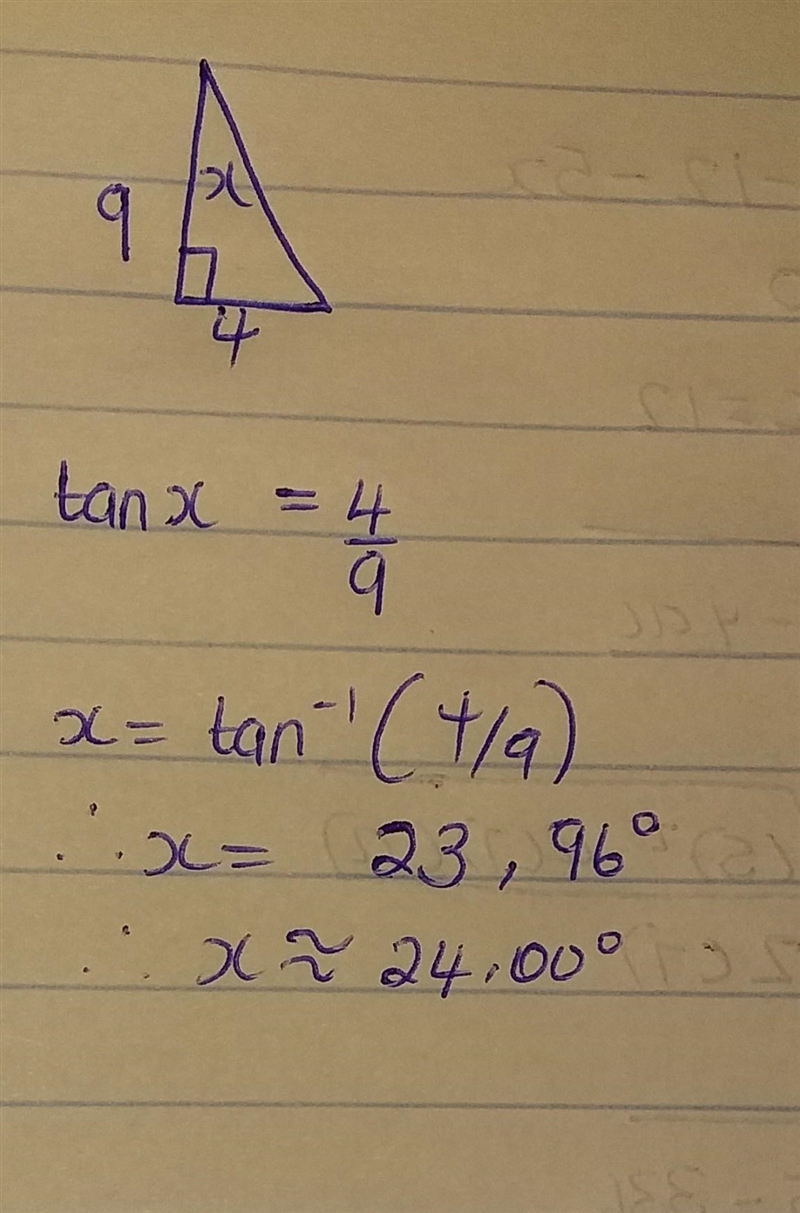 x
9
4
tan x = 4/9
x = tan⁻¹ (4/9)
∴ x = 23,96°
∴ x ≈ 24.00°